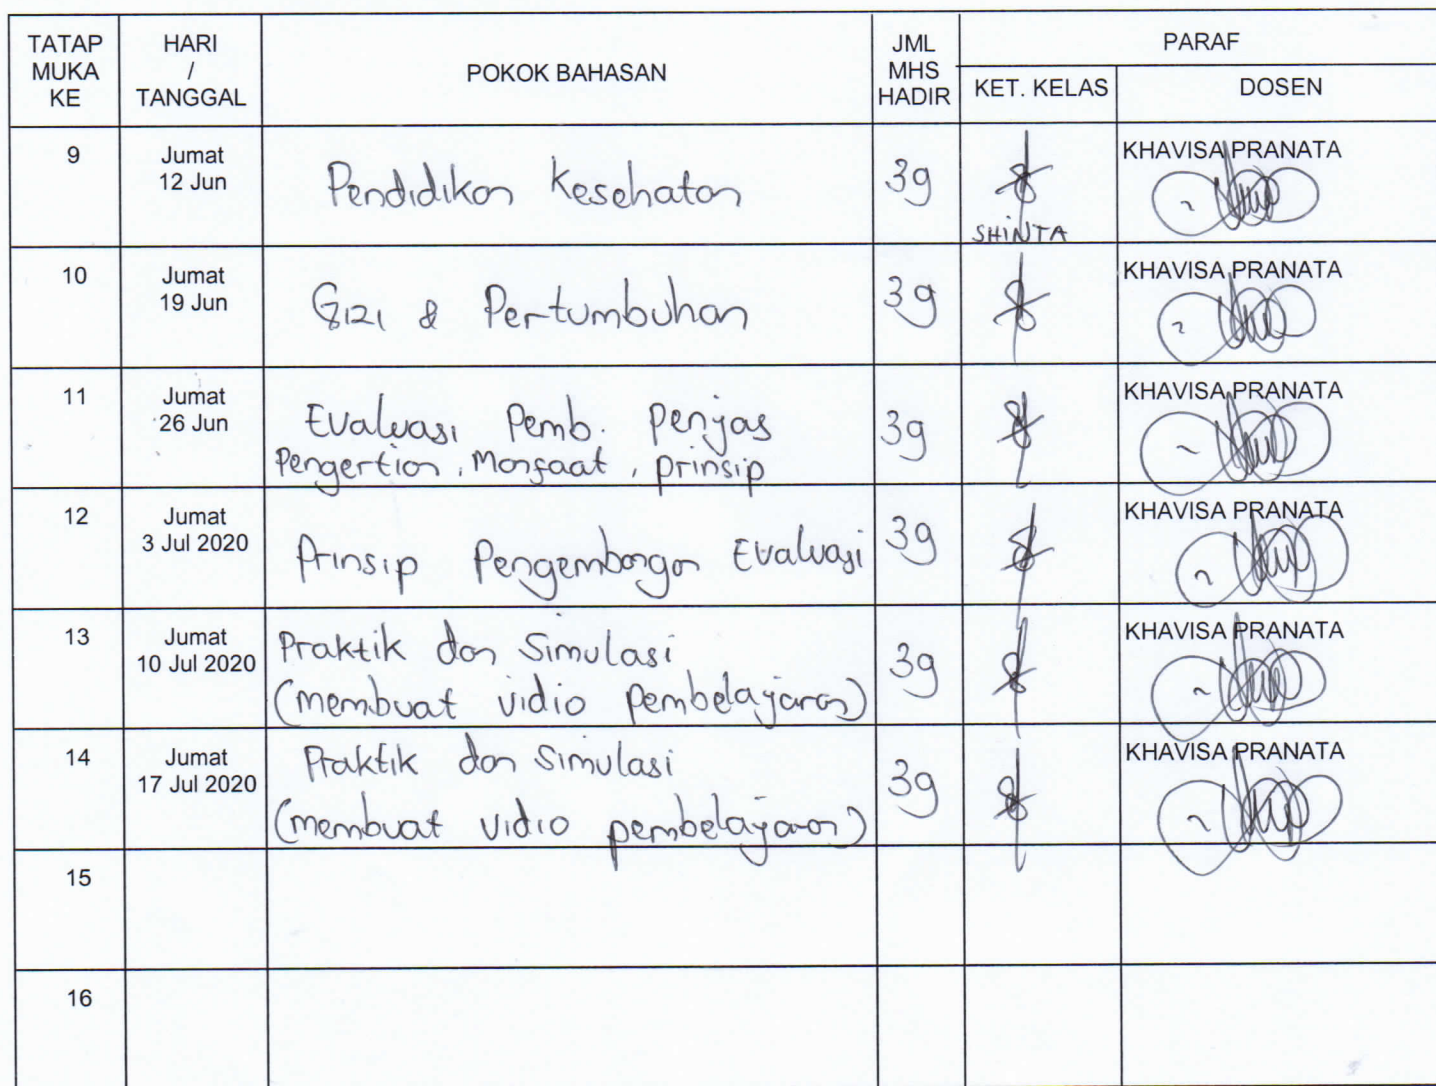 TATAP MUKA KE
HARI / TANGGAL
POKOK BAHASAN
JML MHS HADIR
PARAF
KET. KELAS
DOSEN
9
Jumat
12 Jun
Pendidikan Kesehatan
39
SHINTA
KHAVISA PRANATA
10
Jumat
19 Jun
Gizi & Pertumbuhan
39
KHAVISA PRANATA
11
Jumat
26 Jun
Evaluasi Pemb. Penjas
Pengertian, Manfaat, prinsip
39
KHAVISA PRANATA
12
Jumat
3 Jul 2020
Prinsip Pengembangan Evaluasi
39
KHAVISA PRANATA
13
Jumat
10 Jul 2020
Praktik dan Simulasi
(membuat vidio pembelajaran)
39
KHAVISA PRANATA
14
Jumat
17 Jul 2020
Praktik dan Simulasi
(membuat vidio pembelajaran)
39
KHAVISA PRANATA
15
16